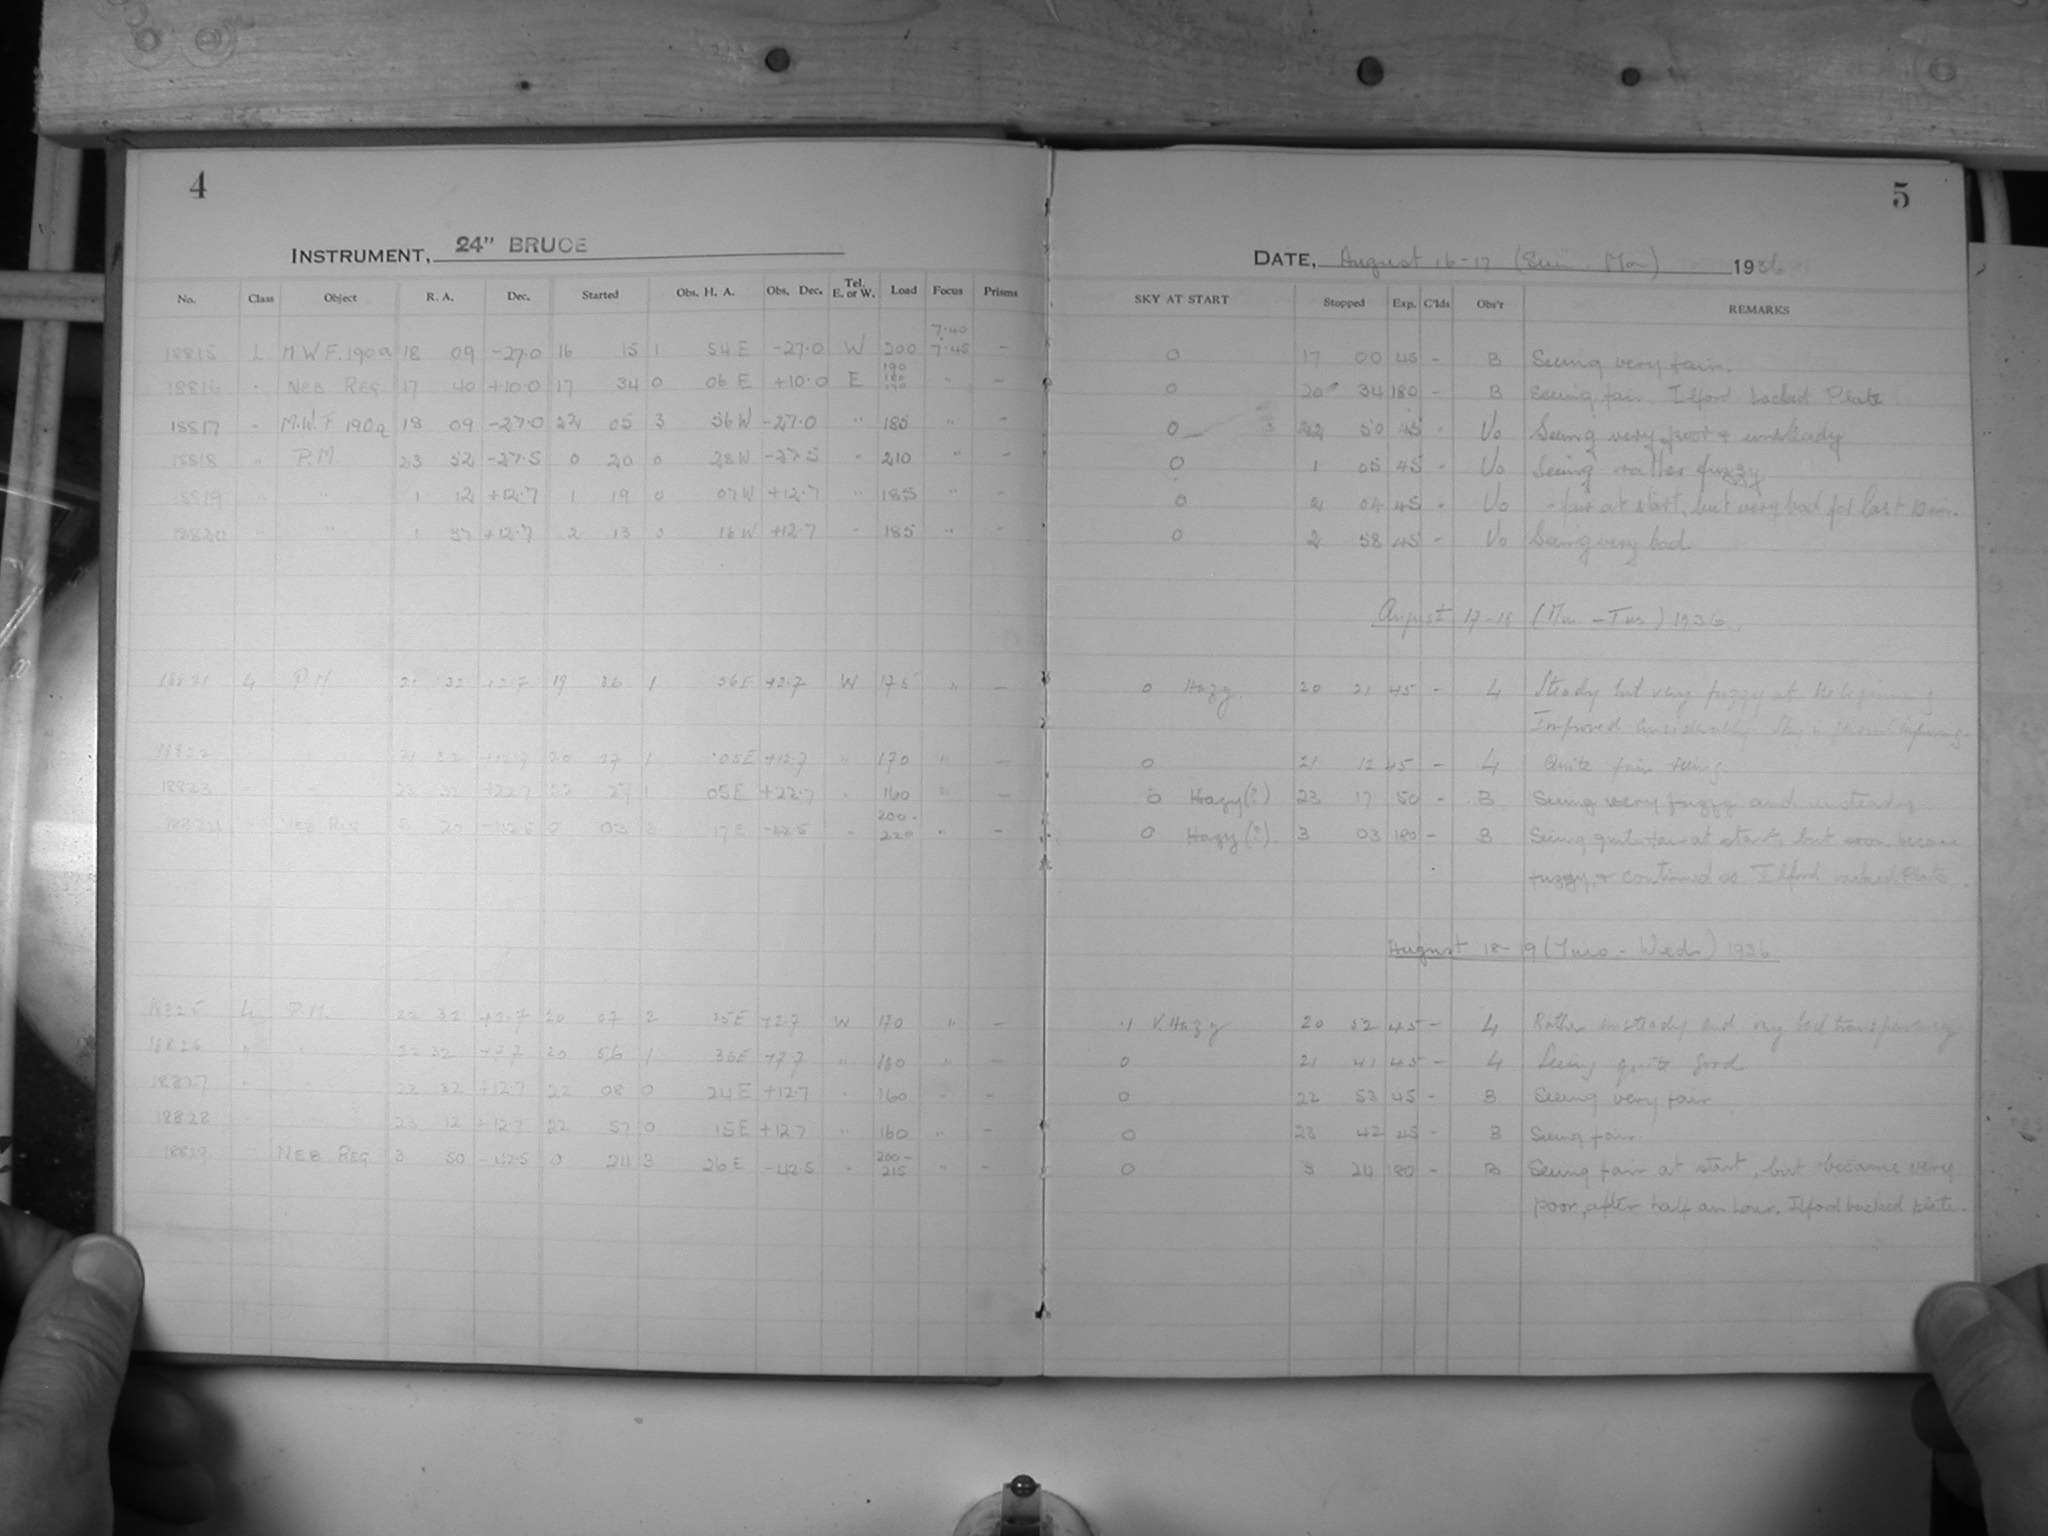 4
INSTRUMENT, 24" BRUCE
No. Class Object R. A. Dec. Started Obs. H. A. Obs. Dec. Tel. E. or W. Load Focus Prisms
7.40
18815 L M W F. 190a 18 09 -27.0 16 15 1 54 E -27.0 W 200 7.45 -
190
18816 " NEB REG. 17 40 +10.0 17 34 0 06 E +10.0 E 180 " -
190
18817 " M.W.F 190a 18 09 -27.0 22 05 3 56 W -27.0 " 185 " -
18818 " P.M. 23 52 -27.5 0 20 0 28 W -27.5 " 210 " -
18819 " " 1 12 +12.7 1 19 0 07 W +12.7 " 185 " -
18820 " " 1 57 +12.7 2 13 0 16 W +12.7 " 185 " -
18821 L P.M. 21 32 +2.7 19 36 1 56 E +2.7 W 175 " -
18822 " 21 32 +12.7 20 27 1 05 E +12.7 " 170 " -
18823 " " +22.7 22 27 1 05 E +22.7 " 160 " -
200 -
18824 " NEB REG 03 17 E " 220 " -
18825 L P.M. 22 32 +2.7 20 07 2 25 E +2.7 W 170 " -
18826 " " 22 32 +7.7 20 56 1 36 E +7.7 " 180 " -
18827 " 22 32 +12.7 22 08 0 24 E +12.7 " 160 " -
18828 " 23 12 +12.7 22 57 0 15 E +12.7 " 160 " -
18829 " NEB REG. 3 50 -42.5 0 24 3 26 E -42.5 " 200 - 215 " -
5
DATE, August 16-17 (Sun - Mon) 1936
SKY AT START Stopped Exp. C'lds Obs'r REMARKS
0 17 00 45 - B Seeing very fair.
0 20 34 180 - B Seeing fair. Ilford backed Plate
0 22 50 45 - Vo Seeing very poor & unsteady
0 1 05 45 - Vo Seeing rather fuzzy
0 2 04 45 - Vo - fair at start, but very bad for last 10 min.
0 2 58 45 - Vo Seeing very bad.
August 17-18 (Mon - Tues) 1936.
0 Hazy. 20 21 45 - L Steady but very fuzzy at the beginning
Improved considerably. Sky in general improving.
0 21 12 45 - L Quite fair seeing.
0 Hazy (?) 23 17 50 - B Seeing very fuzzy and unsteady
0 Hazy (?). 3 03 180 - B Seeing quite fair at start, but soon became
fuzzy, & continued so. Ilford backed Plate.
August 18-19 (Tues - Weds) 1936
.1 V. Hazy 20 52 45 - L Rather unsteady and very bad transparency
0 21 41 45 - L Seeing quite good
0 22 53 45 - B Seeing very fair
0 23 42 45 - B Seeing fair.
0 3 24 180 - B Seeing fair at start, but became very
poor, after half an hour. Ilford backed plate.